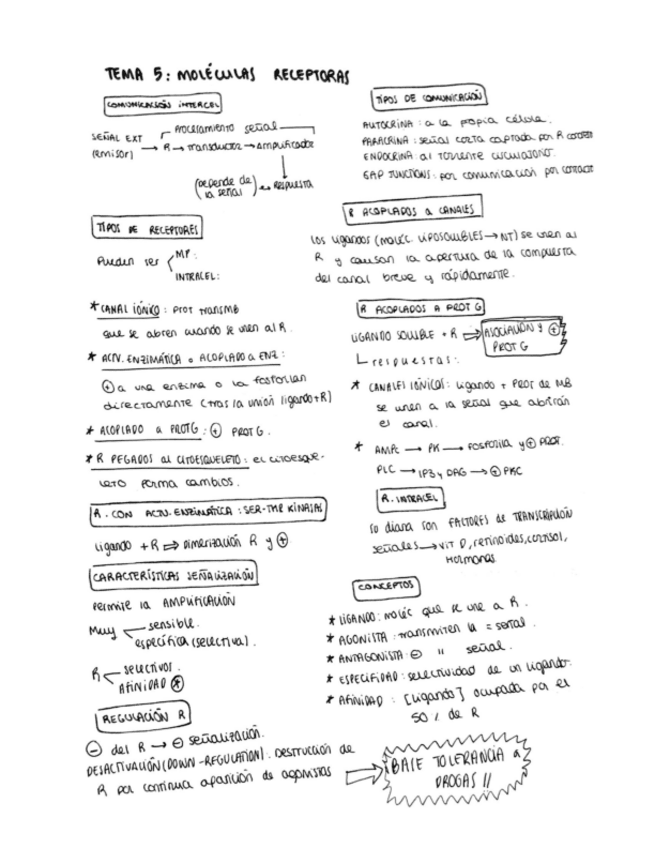 TEMA 5: MOLÉCULAS RECEPTORAS
COMUNICACIÓN INTERCEL
Procesamiento señal
SEÑAL EXT → R → transductor → amplificador
(emisor)
(Depende de la señal) ↔ RESPUESTA
TIPOS DE RECEPTORES
Pueden ser
MP:
INTRACEL:
* CANAL IÓNICO: prot transmb
que se abren cuando se unen al R.
* ACTV. ENZIMÁTICA o ACOPLADO a ENZ:
⊕ a una enzima o la fosforilan
directamente (tras la unión ligando+R)
* ACOPLADO a PROTG: ⊕ PROT G.
* R PEGADOS al CITOESQUELETO: el citoesque-
leto forma cambios.
R. CON ACTV. ENZIMÁTICA: SER-THR KINASAS
ligando + R ⇒ Dimerización R y ⊕
CARACTERÍSTICAS SEÑALIZACIÓN
Permite la AMPLIFICACIÓN
Muy
sensible.
específica (selectiva).
R
SELECTIVOS.
AFINIDAD
REGULACIÓN R
⊖ del R → ⊖ señalización.
DESACTIVACIÓN (DOWN-REGULATION): DESTRUCCIÓN de
R por continua aparición de agonistas
TIPOS DE COMUNICACIÓN
AUTOCRINA: a la propia célula.
PARACRINA: señal corta captada por R
ENDOCRINA: al torrente circulatorio.
GAP JUNCTIONS: por comunicación por contacto
R ACOPLADOS a CANALES
Los ligandos (moléc. LIPOSOLUBLES → NT) se unen al
R y causan la apertura de la compuerta
del canal breve y rápidamente.
R ACOPLADOS A PROT G
LIGANDO SOLUBLE + R ⇒ ASOCIACIÓN y ⊕ PROT G
respuestas:
* CANALES IÓNICOS: ligando + PROT de MB
se unen a la señal que abrirán
el canal.
* AMPc → PK → FOSFORILA y ⊕ PROT.
PLC → IP3 y DAG → ⊕ PKC
R. INTRACEL
su diana son FACTORES de TRANSCRIPCIÓN
señales → VIT D, retinoides, cortisol,
HORMONAS
CONCEPTOS
* LIGANDO: moléc que se une a R.
* AGONISTA: transmiten la = señal.
* ANTAGONISTA: ⊖ " señal.
* ESPECIFIDAD: selectividad de un ligando.
* AFINIDAD: [ligando] ocupada por el
50 % de R
¡BASE TOLERANCIA a
DROGAS!!